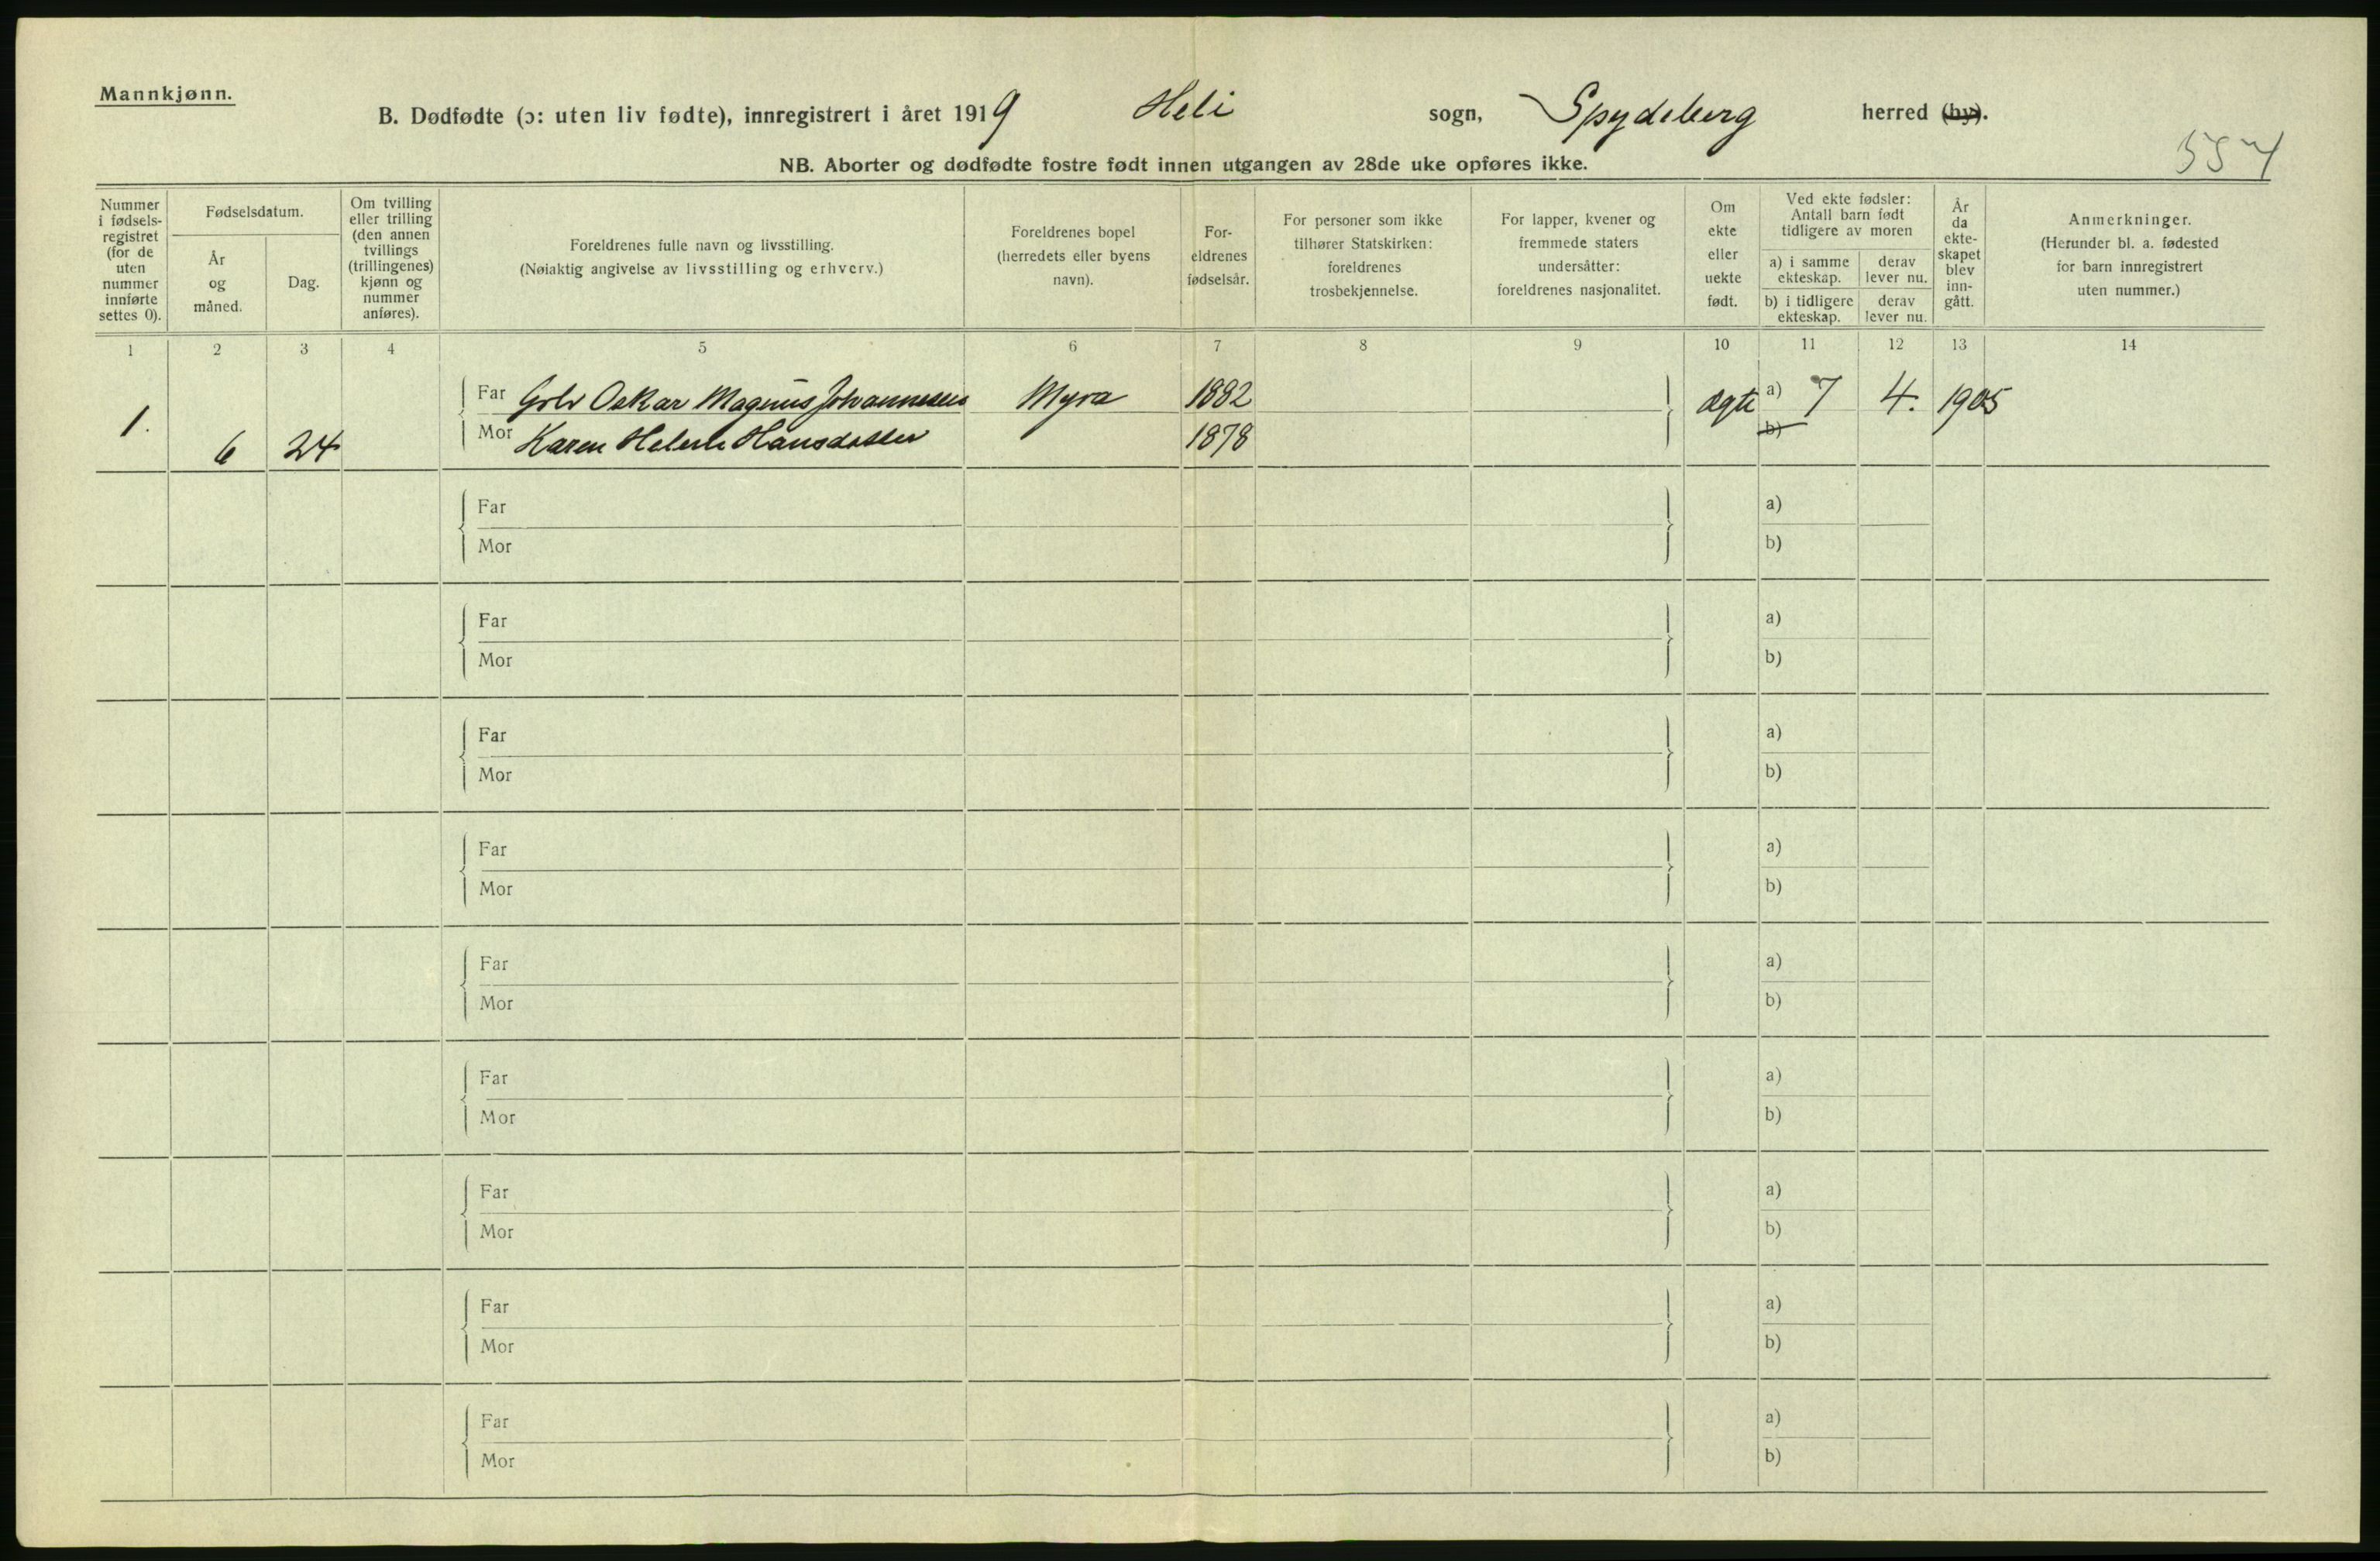 Mannkjønn.
B. Dødfødte (ɔ: uten liv fødte), innregistrert i året 1919 Heli sogn, Spydeberg herred (by).
554
NB. Aborter og dødfødte fostre født innen utgangen av 28de uke opføres ikke.
Nummer i fødsels-registret (for de uten nummer innførte settes 0).
Fødselsdatum.
År og måned.
Dag.
Om tvilling eller trilling (den annen tvillings (trillingenes) kjønn og nummer anføres).
Foreldrenes fulle navn og livsstilling.
(Nøiaktig angivelse av livsstilling og erhverv.)
Foreldrenes bopel (herredets eller byens navn).
For-eldrenes fødselsår.
For personer som ikke tilhører Statskirken: foreldrenes trosbekjennelse.
For lapper, kvener og fremmede staters undersåtter: foreldrenes nasjonalitet.
Om ekte eller uekte født.
Ved ekte fødsler: Antall barn født tidligere av moren
a) i samme ekteskap.
derav lever nu.
b) i tidligere ekteskap.
derav lever nu.
År da ekte-skapet blev inn-gått.
Anmerkninger.
(Herunder bl. a. fødested for barn innregistrert uten nummer.)
1 2 3 4 5 6 7 8 9 10 11 12 13 14
1. 6 24
Far Oskar Magnus Johannesen Myra 1882 ægte a) 7 4. 1905
Mor Karen Helene Hansdatter 1878 b)
Far a)
Mor b)
Far a)
Mor b)
Far a)
Mor b)
Far a)
Mor b)
Far a)
Mor b)
Far a)
Mor b)
Far a)
Mor b)
Far a)
Mor b)
Far a)
Mor b)